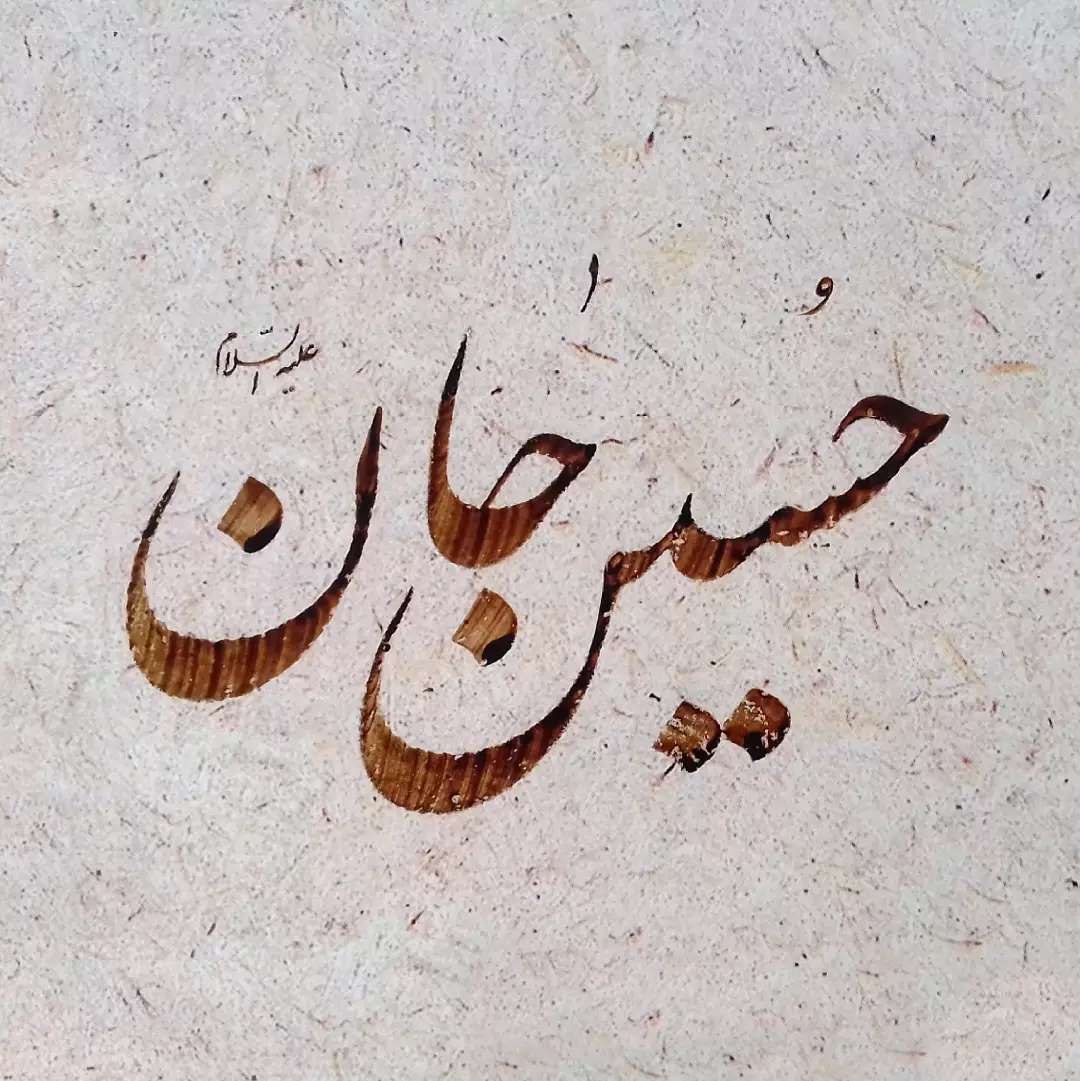 حُسین جان
علیه السّلام